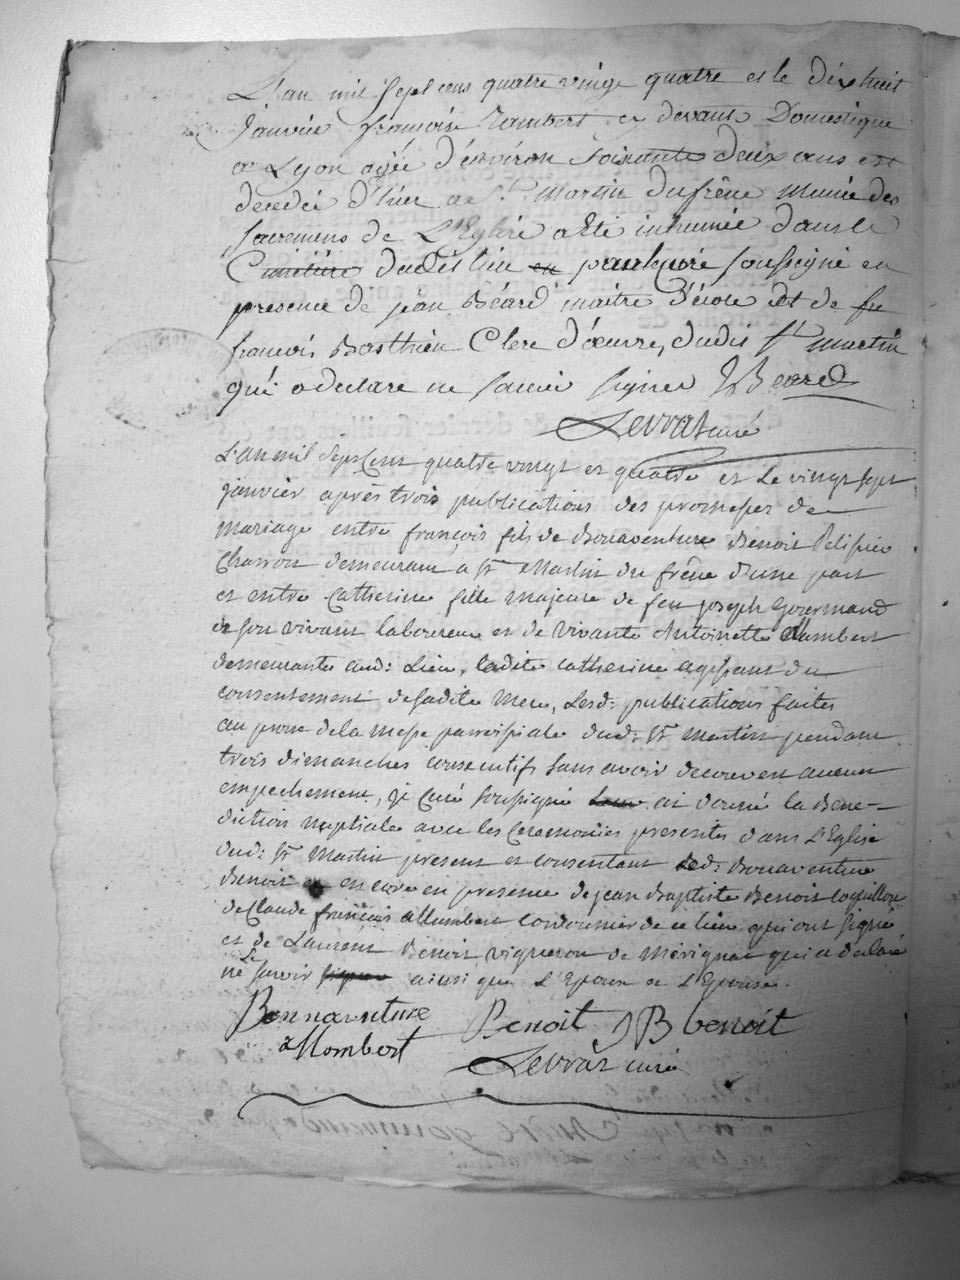 L'an mil sept cens quatre vingt quatre et le dix huit
Janvier françoise Rambert cy devant Domestique
a Lyon agée d'environ soixante deux ans est
decedée d'hier a St. Martin du frêne Munie des
sacremens de L'Eglise a Eté inhumée dans le
Cimitiere dudit lieu par le curé soussigné en
presence de jean Béard maitre d'école et de
françois Basthien Clerc d'œuvre, dudit St Martin
qui a declaré ne savoir signer JBeard
Levrat curé
L'an mil sept cent quatre vingt et quatre et Le vingt sept
janvier après trois publications des promesses de
mariage entre françois fils de Bonaventure Benoit Pelissier
Charron demeurant a St Martin du frêne d'une part
et entre Catherine fille majeure de feu joseph Gourmand
de son vivant laboureur et de vivante Antoinette Allombert
demeurante aud: Lieu, ladite catherine agissant du
consentement de sadite Mere, Lesd: publications faites
au prone de la messe parroissiale dud: St Martin pendant
trois dimanches consecutifs sans avoir decouvert aucun
empechement, je Curé soussigné ai donné la Bene-
diction nuptiale avec les Ceremonies presentes dans L'Eglise
dud: St Martin present et consentant Led: Bonaventure
Benoit encore en presence de jean Baptiste Benoit
de Claude françois allombert cordonnier de ce lieu qui ont signé
et de Laurent Benoit vigneron de Mérignat qui a declaré
ne Le savoir ainsi que L'Epoux et L'Epouse.
Bonnaventure Benoit JB benoit
allombert
Levrat curé